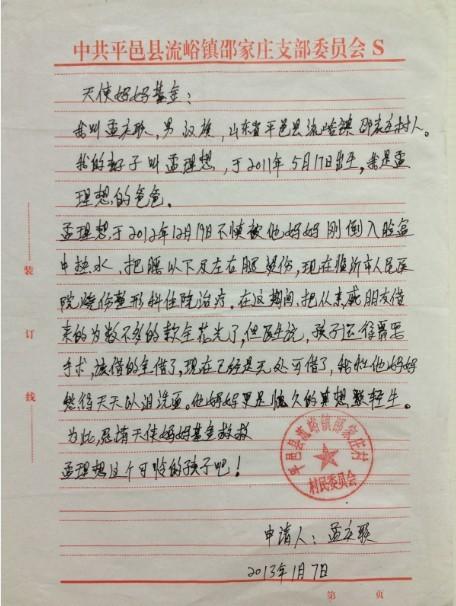 中共平邑县流峪镇邵家庄支部委员会 S
天使妈妈基金：
我叫孟立联，男 汉族，山东省平邑县流峪镇 邵家庄村人。
我的孩子叫孟理想，于2011年5月17日出生，我是孟
理想的爸爸。
孟理想于2012年12月19日不慎被他妈妈刚倒入脸盆
中热水，把腰以下及左右腿烫伤，现在临沂市人民医
院烧伤整形科住院治疗。在这期间，把从亲戚朋友借
来的为数不多的款全花光了，但医生说，孩子还得需要
手术，该借的全借了，现在已经是无处可借了，我和他妈妈
愁得天天以泪洗面。他妈妈更是愧久的真想轻生。
为此，恳请天使妈妈基金救救
孟理想这个可怜的孩子吧！
平邑县流峪镇邵家庄村
村民委员会
申请人：孟立联
2013年1月7日
第 页
装
订
线